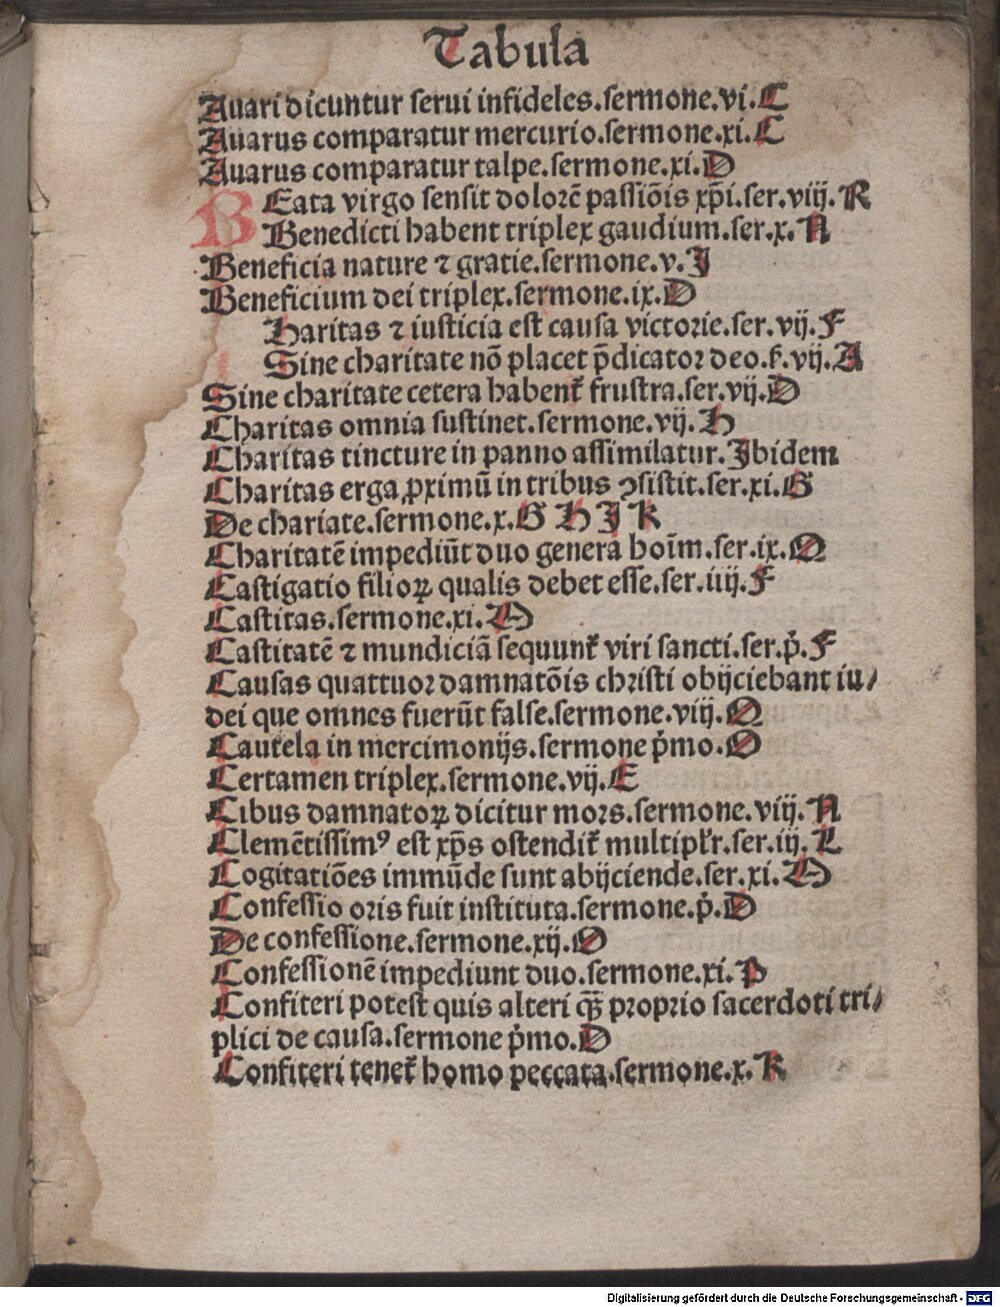 Tabula
Auari dicuntur serui infideles.sermone.vi.C
Auarus comparatur mercurio.sermone.xi.C
Auarus comparatur talpe.sermone.xi.D
BEata virgo sensit dolorē passiōis xp̄i.ser.viij.R
Benedicti habent triplex gaudium.ser.x.N
Beneficia nature ⁊ gratie.sermone.v.I
Beneficium dei triplex.sermone.ix.D
Haritas ⁊ iusticia est causa victorie.ser.vij.F
Sine charitate nō placet p̄dicator deo.ẜ.vij.A
Sine charitate cetera habent᷑ frustra.ser.vij.D
Charitas omnia sustinet.sermone.vij.H
Charitas tincture in panno assimilatur.Ibidem
Charitas erga ꝓximū in tribus ↄsistit.ser.xi.G
De chariate.sermone.x.G H I K
Charitatē impediūt duo genera hoīm.ser.ix.Q
Castigatio filioꝝ qualis debet esse.ser.iiij.F
Castitas.sermone.xi.H
Castitatē ⁊ mundiciā sequunt᷑ viri sancti.ser.p̓.F
Causas quattuor damnatōis christi obijciebant iu/
dei que omnes fuerūt false.sermone.viij.Q
Cautela in mercimonijs.sermone p̓mo.O
Certamen triplex.sermone.vij.E
Cibus damnatoꝝ dicitur mors.sermone.viij.N
Clemētissimꝰ est xp̄s ostendit᷑ multipl'r.ser.iij.L
Cogitatiōes immūde sunt abijciende.ser.xi.H
Confessio oris fuit instituta.sermone.p̓.D
De confessione.sermone.xij.O
Confessionē impediunt duo.sermone.xi.P
Confiteri potest quis alteri q̄ꝫ proprio sacerdoti tri/
plici de causa.sermone p̓mo.D
Confiteri tenet᷑ homo peccata.sermone.x.K
Digitalisierung gefördert durch die Deutsche Forschungsgemeinschaft - DFG